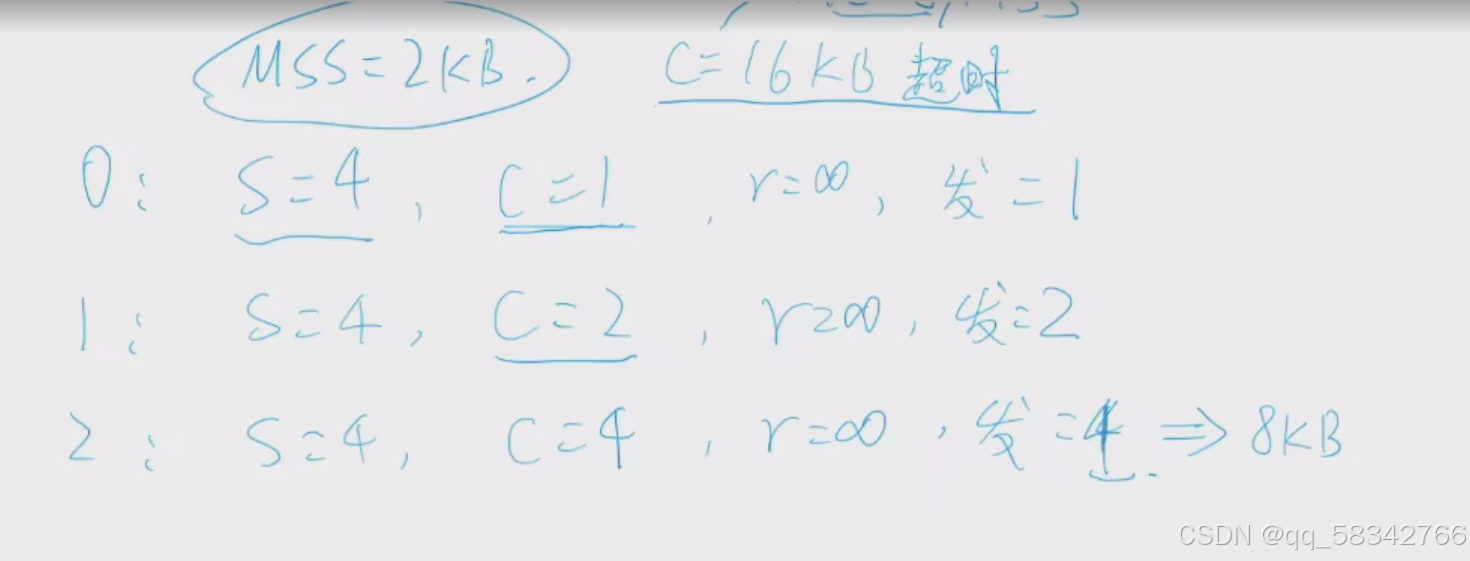 MSS=2KB.
C=16KB 超时
0: S=4, C=1, r=∞, 发=1
1: S=4, C=2, r=∞, 发=2
2: S=4, C=4, r=∞, 发=4 ⇒ 8KB
CSDN @qq_58342766